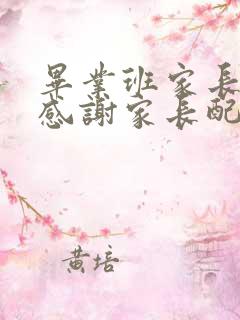 畢業班家長
感謝家長配
黃培